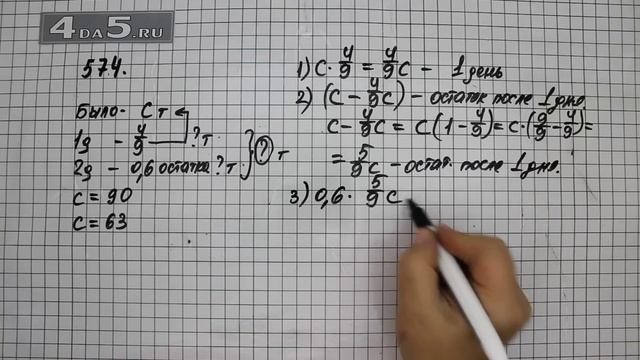 4DA5.RU
574.
Было - С т
1д - 4/9 ? т
2д - 0,6 остатка ? т } ? т
с = 90
с = 63
1) с · 4/9 = 4/9 с - 1 день
2) (с - 4/9 с) - остаток после 1 дня.
с - 4/9 с = с(1 - 4/9) = с · (9/9 - 4/9) =
= 5/9 с - остат. после 1 дня.
3) 0,6 · 5/9 с